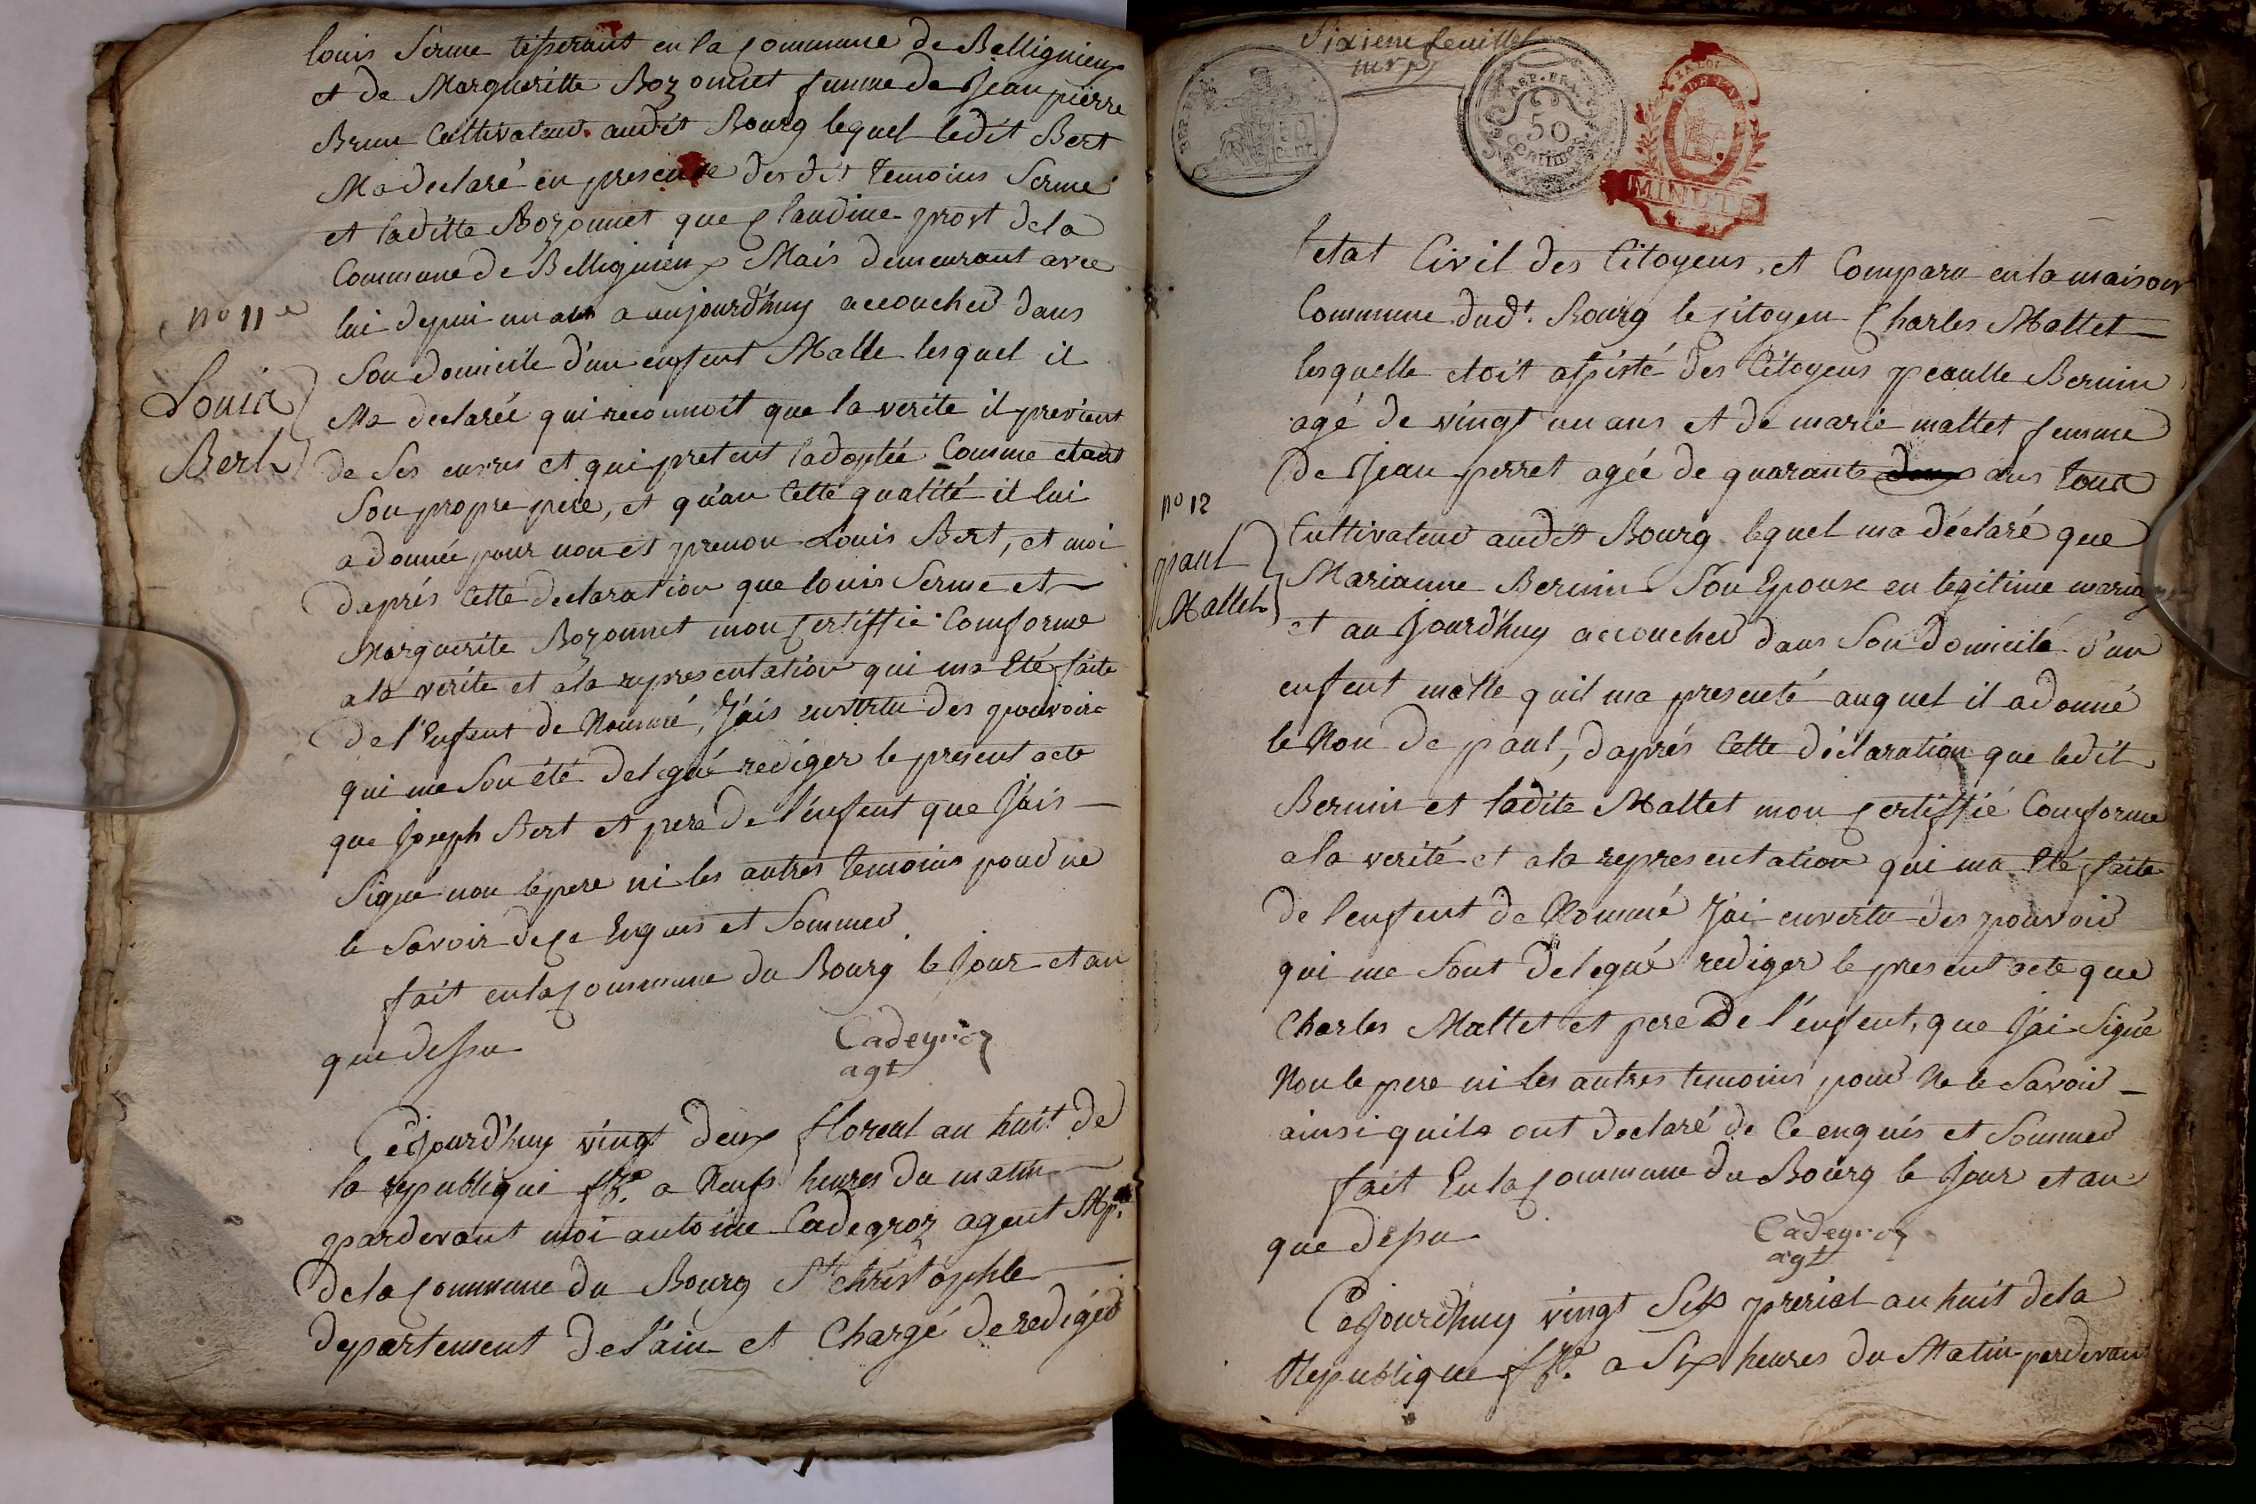 louis Serme tisserant en la Commune de Belligneux
et de Margueritte Bozonnet femme de Jean pierre
Brun Cultivateur audit Bourg lequel ledit Bert
Ma declaré en presence des dit temoins Serme
et laditte Bozonnet que Claudine prost de la
Commune de Belligneux Mais demeurant avec
lui depui un an a aujourd'huy accoucher dans
Son domicile d'un enfent Malle lesquel il
Ma declarée qui reconnoit que la verite il previent
de Ses euvres et qui pretent l'adoptée Comme etant
Son propre pere, et qu'an Cette qualité il lui
a donnée pour non et prenon Louis Bert, et moi
daprés Cette declaration que louis Serme et
Marguerite Bozonnet mon Certiffié Comforme
a la verite et a la representation qui ma Eté faite
de l'enfent de Nommé, J'ais envertu des pouvoir
qui me Son été delegué rediger le present acte
que Joseph Bert et pere de l'enfent que J'ais
Signé non le pere ni les autres temoins pour ne
le Savoir de Ce Enquis et Sommer
fait en la Commune du Bourg le Jour et an
que dessu
Cadegroz
agt
no 11e
Louis
Bert
Cejourd'huy vingt deux floreal an huit de
la republique fse. a Neufs heures du matin
pardevant moi antoine Cadegroz agent Mpal.
de la Commune du Bourg St Christophle
departement de l'ain et Chargé de rediger
Sixieme feuillet
REP. FRA.
50
cent.
REP. FRA.
50
centimes
LA LOI
MINUTE
l'etat Civil des Citoyens, et Comparu en la maison
Commune dudt. Bourg le Citoyen Charles Mallet
lesquelle etoit assisté des Citoyens peaulle Bernin
agé de vingt un ans et de marie mallet femme
de Jean perret agée de quarante ans tous
Cultivateur audit Bourg lequel ma déclaré que
Marianne Bernin Son Epouse en legitime mariage
et au Jourd'huy accoucher dans Son domicile d'un
enfent malle quil ma presenté auquel il a donné
le Non de paul, daprés Cette déclaration que ledit
Bernin et ladite Mallet mon Certiffié Comforme
a la verité et a la representation qui ma Eté faite
de l'enfent de Nommé J'ai envertu des pouvoir
qui me Sont delegué rediger le present acte que
Charles Mallet et pere de l'enfent, que J'ai Signé
Non le pere ni les autres temoins pour Ne le Savoir
ainsi quils ont declaré de Ce enquis et Sommer
fait En la Commune du Bourg le Jour et an
que dessu
Cadegroz
agt
no 12
paul
Mallet
Cejourdhuy vingt Six prerial an huit de la
Republique fse. a Six heures du Matin pardevant